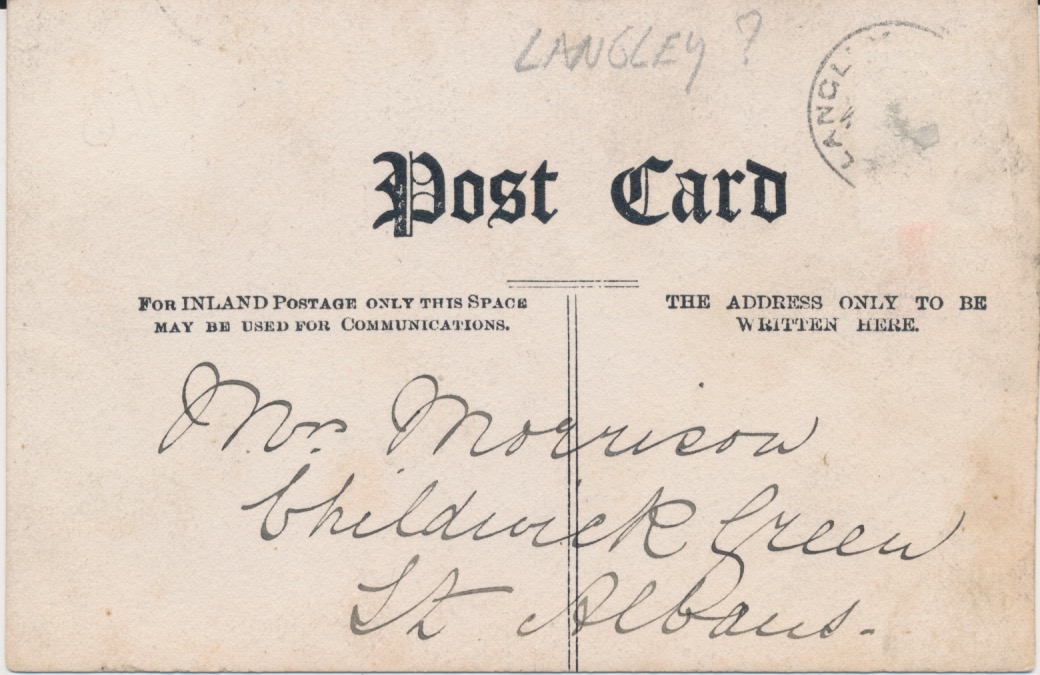 LANGLEY ?
LANGL
Post Card
FOR INLAND POSTAGE ONLY THIS SPACE
MAY BE USED FOR COMMUNICATIONS.
THE ADDRESS ONLY TO BE
WRITTEN HERE.
Mrs Morrison
Childwick Green
St Albans.